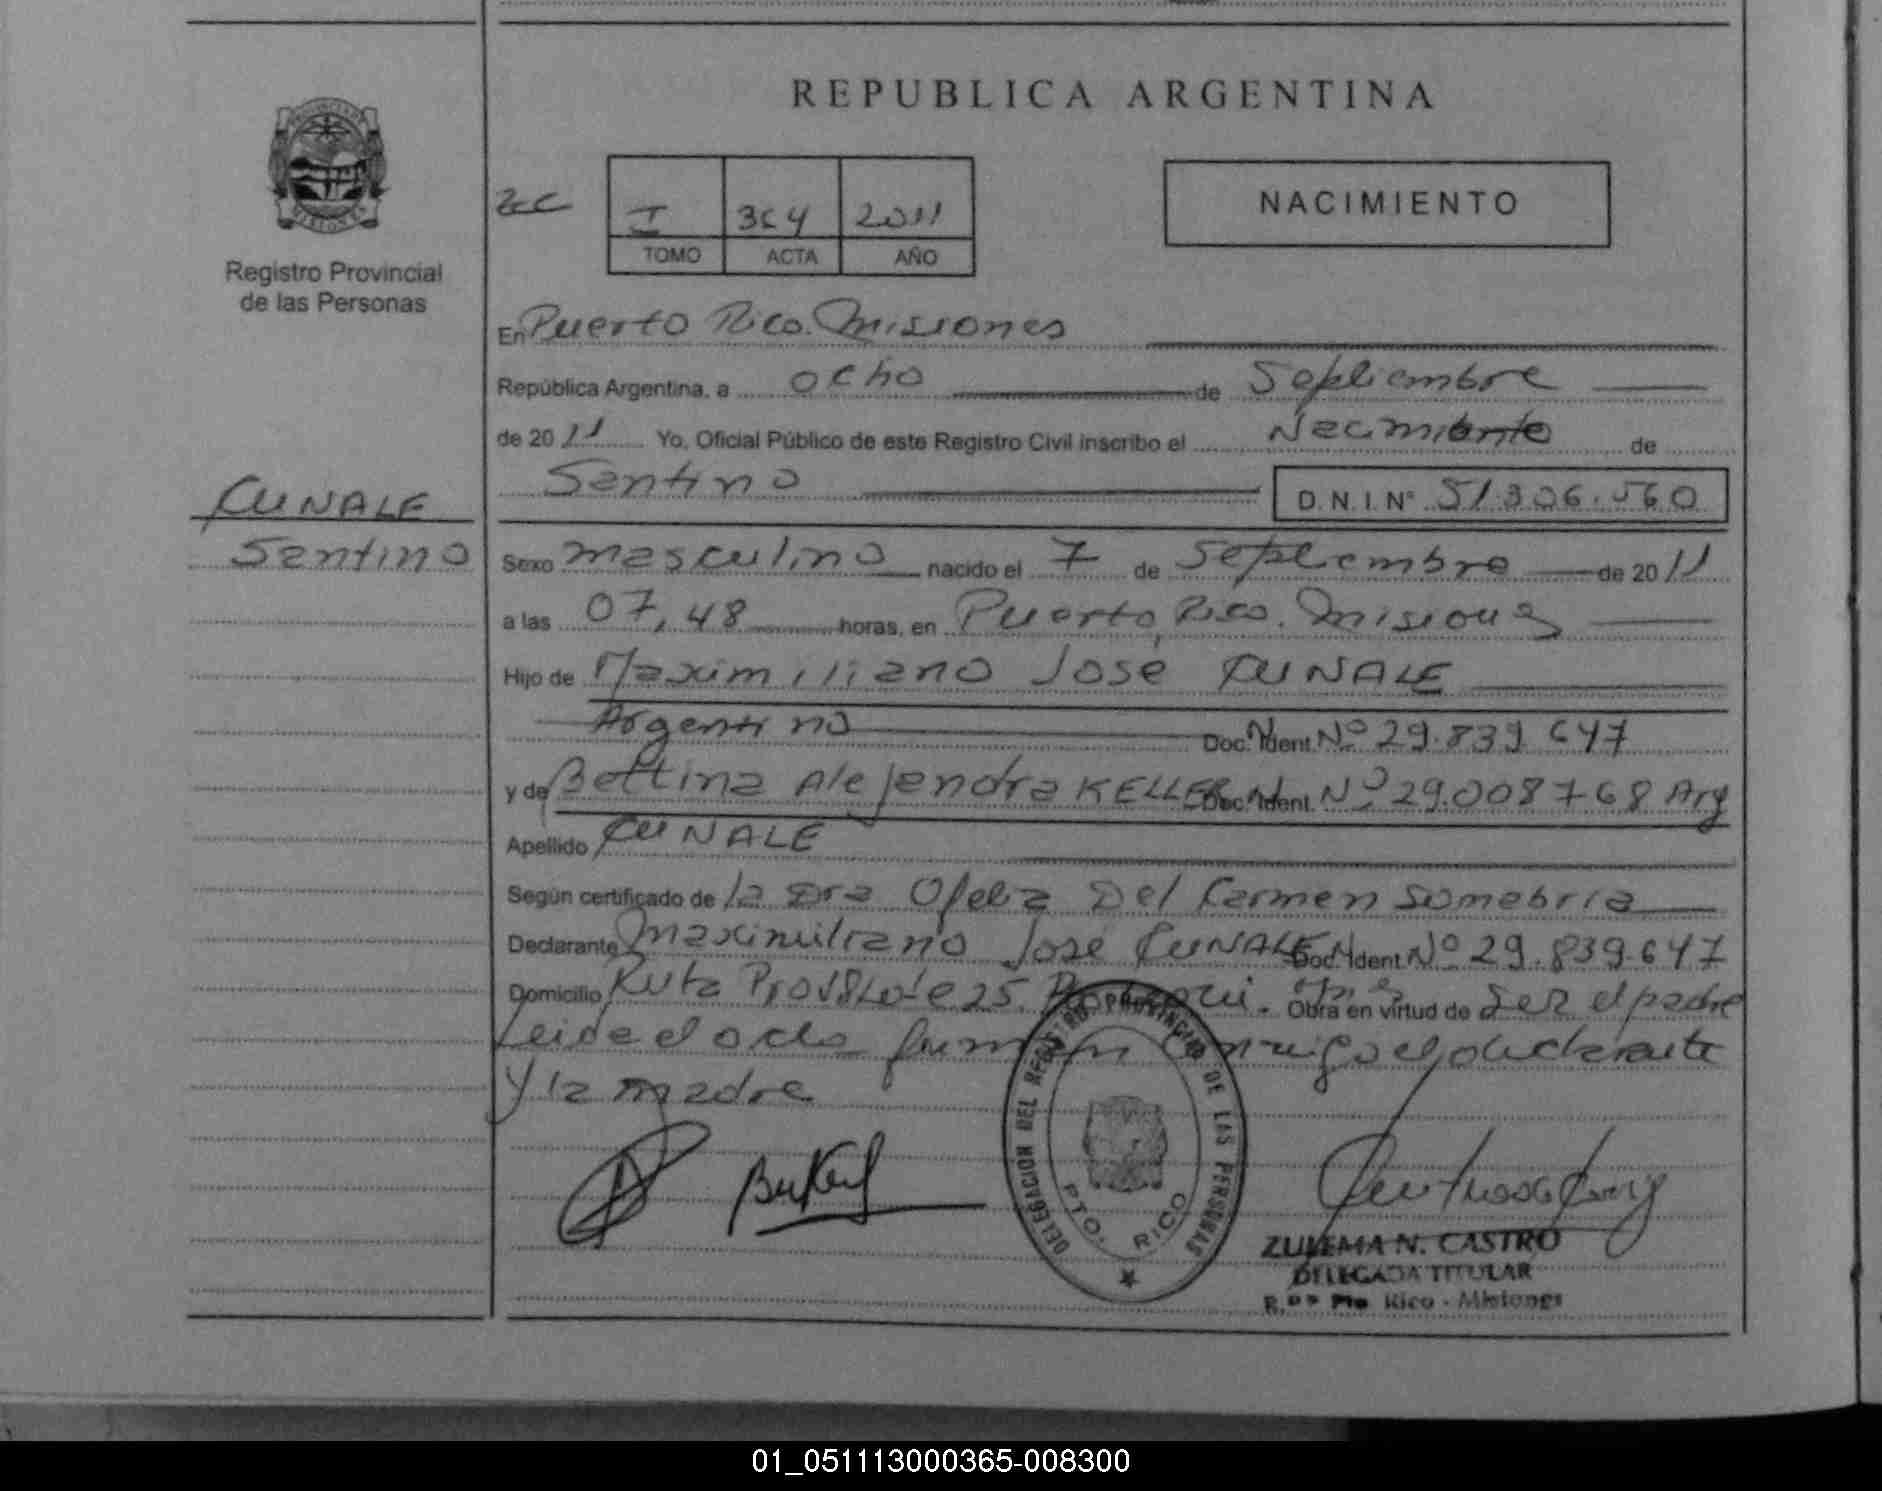 REPUBLICA ARGENTINA
NACIMIENTO
I 364 2011
TOMO ACTA AÑO
Registro Provincial
de las Personas
En Puerto Rico. Misiones
República Argentina, a ocho de Septiembre
de 2011 Yo, Oficial Público de este Registro Civil inscribo el Nacimiento de
Santino D.N.I. Nº 51.306.560
CUNALE
Santino
Sexo masculino nacido el 7 de Septiembre de 2011
a las 07,48 horas, en Puerto Rico. Misiones
Hijo de Maximiliano José CUNALE
Argentino Doc. Ident. Nº 29.839.647
y de Bettina Alejandra KELLER Doc. Ident. Nº 29.008768 Arg
Apellido CUNALE
Según certificado de la Dra Ofelia Del Carmen Somabria
Declarante Maximiliano José CUNALE Doc. Ident. Nº 29.839.647
Domicilio Ruta 25. Obra en virtud de Ser el padre
Leida el acta firman conmigo el declarante
y la madre
DELEGACION DEL REGISTRO PROVINCIAL DE LAS PERSONAS
PTO. RICO
ZULEMA N. CASTRO
DELEGADA TITULAR
R.PP Pto. Rico - Misiones
01_051113000365-008300